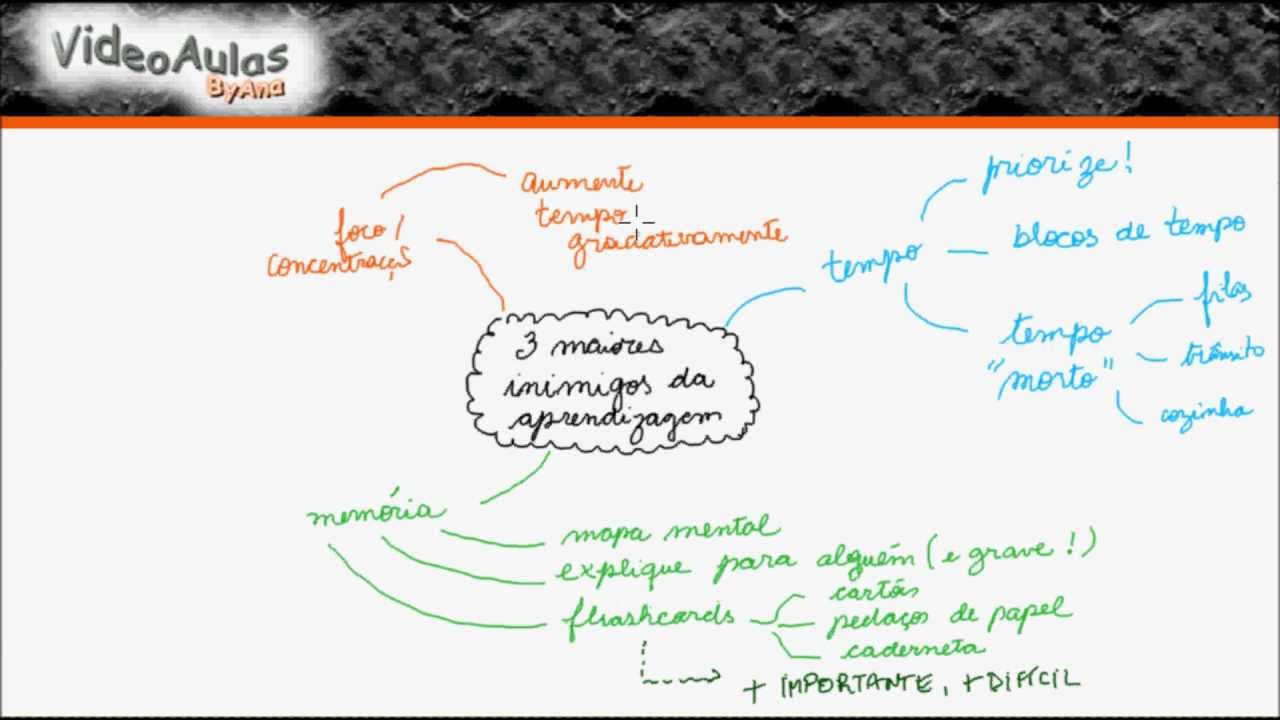 VideoAulas
ByAna
foco/
concentração
aumente
tempo
gradativamente
tempo
priorize!
blocos de tempo
tempo
"morto"
filas
trânsito
cozinha
3 maiores
inimigos da
aprendizagem
memória
mapa mental
explique para alguém (e grave!)
flashcards
cartões
pedaços de papel
caderneta
+ IMPORTANTE, + DIFÍCIL